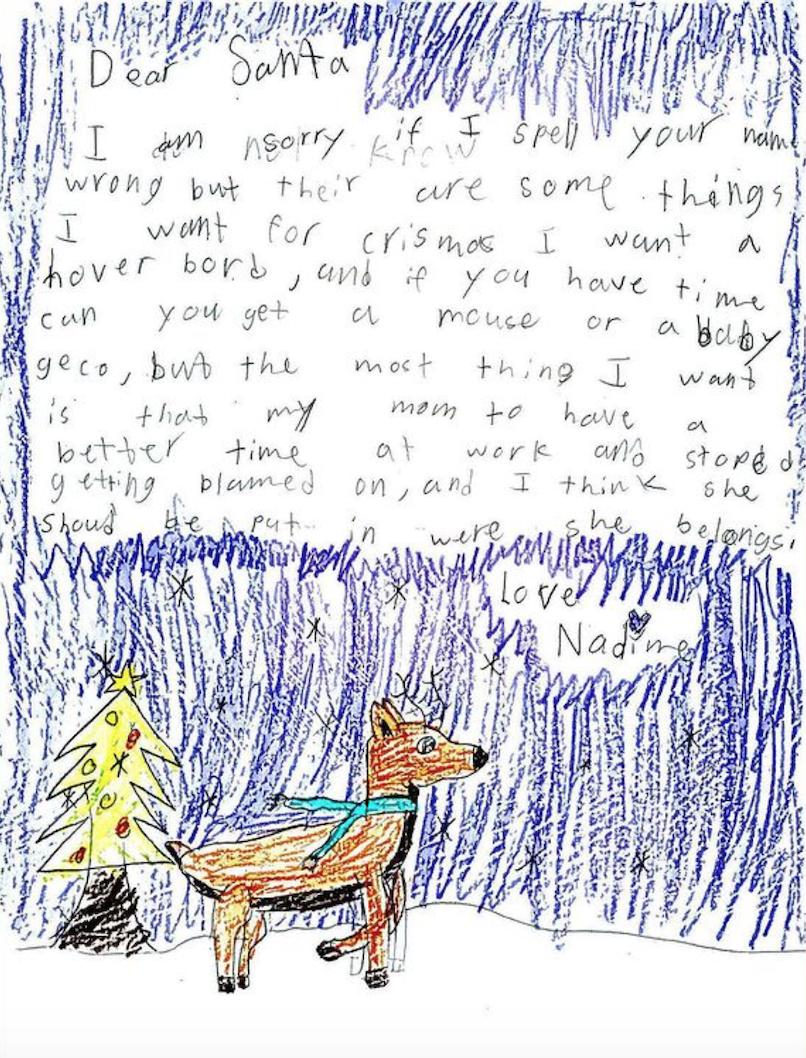 Dear Santa
I am sorry if I spell your nam
wrong but their are some things
I want for crismas I want a
hover bord, and if you have time
can you get a mouse or a baby
geco, but the most thing I want
is that my mom to have a
better time at work and stoped
getting blamed on, and I think she
shoud be put in were she belongs.
Love
Nadime